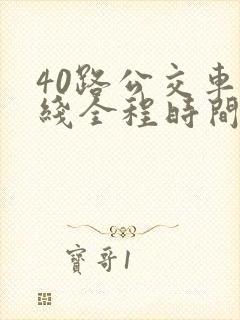 40路公交車
綫全程時間
寶哥1